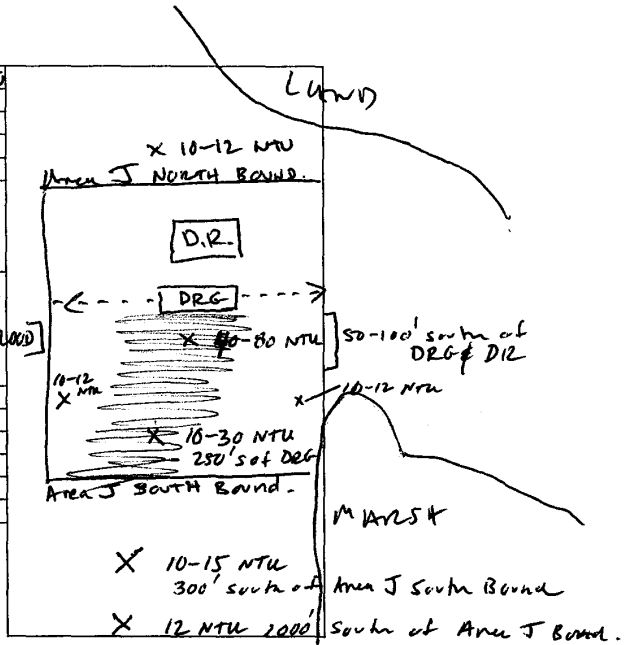 LAND
X 10-12 NTU
Area J NORTH BOUND.
D.R.
DRG
X 0-80 NTU
50-100' south of
DRG & DR
10-12
X NTU
X 10-12 NTU
X 10-30 NTU
250' S of DRG
Area J SOUTH Bound.
MARSH
X 10-15 NTU
300' south of Area J South Bound
X 12 NTU 1000' South of Area J Bound.